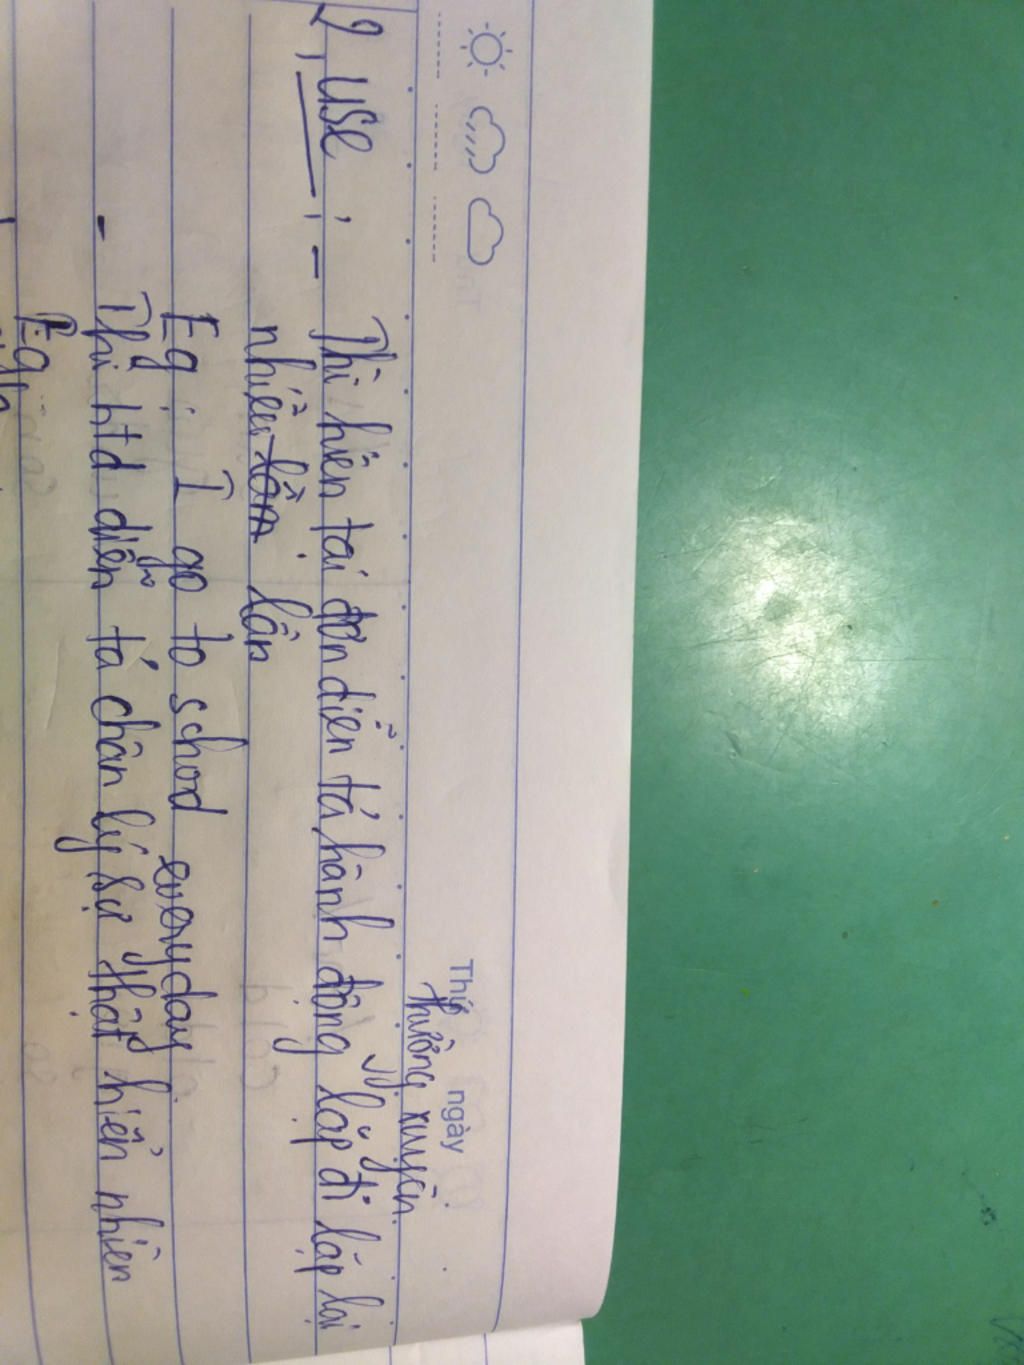 Thứ ngày
thường xuyên
2, Use : - Thì hiện tại đơn diễn tả hành động lặp đi lặp lại
nhiều lần lần
Eg : I go to school everyday
- Thì htđ diễn tả chân lý sự thật hiển nhiên
Eg